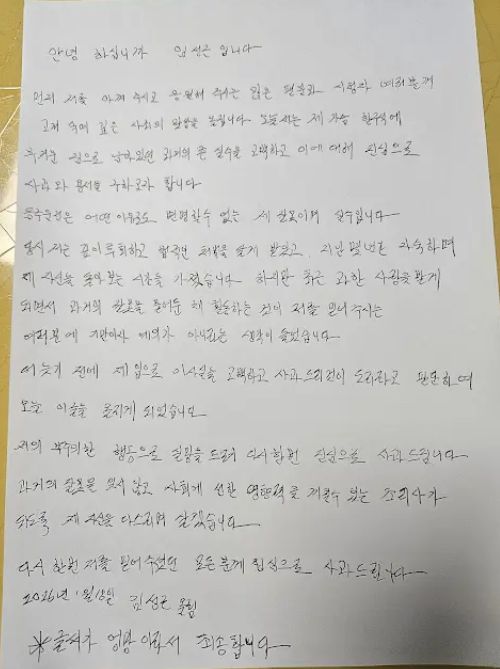 안녕 하십니까 임성근 입니다
먼저 저를 아껴 주시고 응원해 주시는 많은 팬분과 시청자 여러분께
고개 숙여 깊은 사죄의 말씀을 올립니다 오늘 저는 제 가슴 한구석에
무거운 짐으로 남아있던 과거의 큰 실수를 고백하고 이에 대해 진심으로
사과와 용서를 구하고자 합니다
음주운전은 어떤 이유로도 변명할수 없는 제 잘못이며 실수입니다
당시 저는 깊이 후회하고 법적인 처벌을 달게 받았고, 지난 몇년은 자숙하며
제 자신을 돌아 보는 시간을 가졌습니다 하지만 최근 과한 사랑을 받게
되면서 과거의 잘못을 묻어둔 채 활동하는 것이 저를 믿어주시는
여러분에 기만이자 예의가 아니라는 생각이 들었습니다
더 늦기 전에 제 입으로 이사실을 고백하고 사과드리것이 도리라고 판단하여
오늘 이글을 올리게 되었습니다
저의 부주의한 행동으로 실망을 드려 다시한번 진심으로 사과 드립니다
과거의 잘못을 잊지 않고 사회에 선한 영향력을 끼칠수 있는 조리사가
되도록 제 자신을 다스리며 살겠습니다
다시 한번 저를 믿어 주셨던 모든분께 진심으로 사과드립니다
2026년 1월18일 임성근 올림
※글씨가 엉망 이라서 죄송합니다